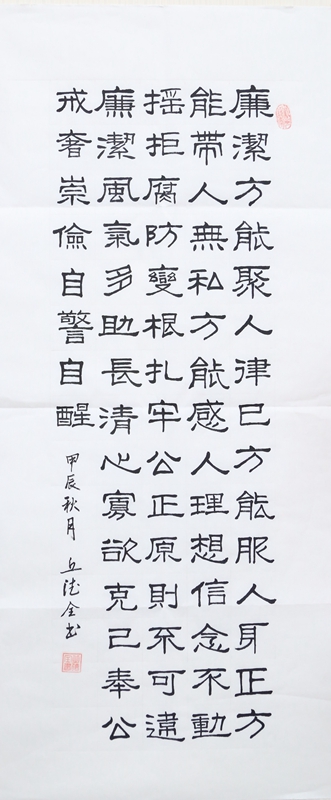 廉潔方能聚人律已方能服人身正方
能帶人無私方能感人理想信念不動
摇拒腐防變根扎牢公正原則不可違
廉潔風氣多助長清心寡欲克己奉公
戒奢崇儉自警自醒
甲辰秋月 丘德全书